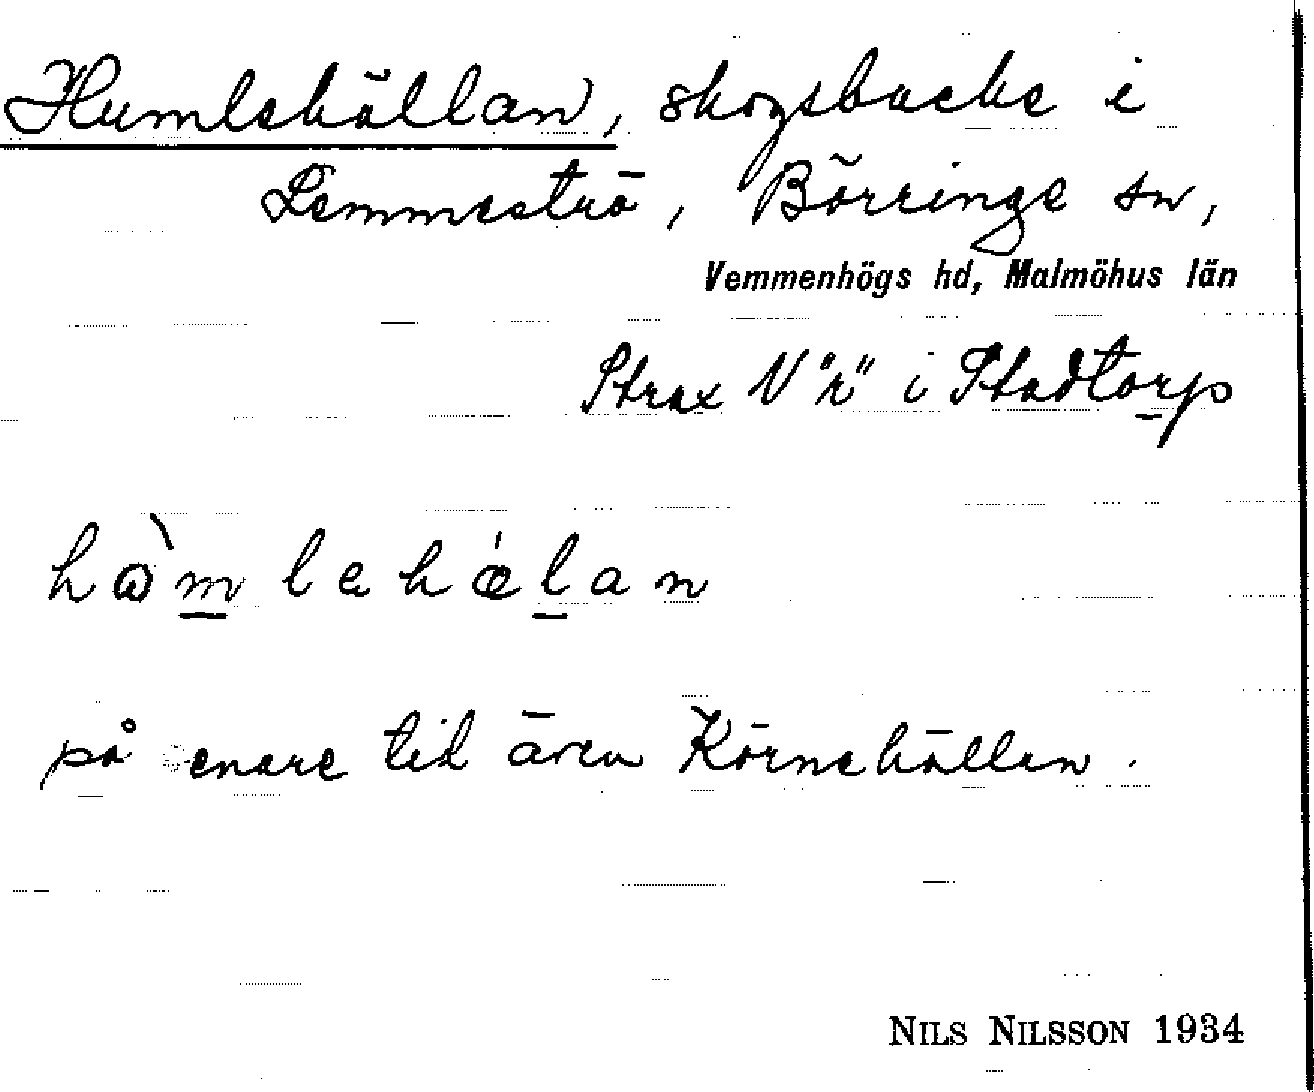 Humlehällan, skogsbacke i
Lemmeströ, Börringe sn,
Vemmenhögs hd, Malmöhus län
Strax V "r" i Stadtorp
hòmlehælan
på senare tid även Körnehällan.
NILS NILSSON 1934